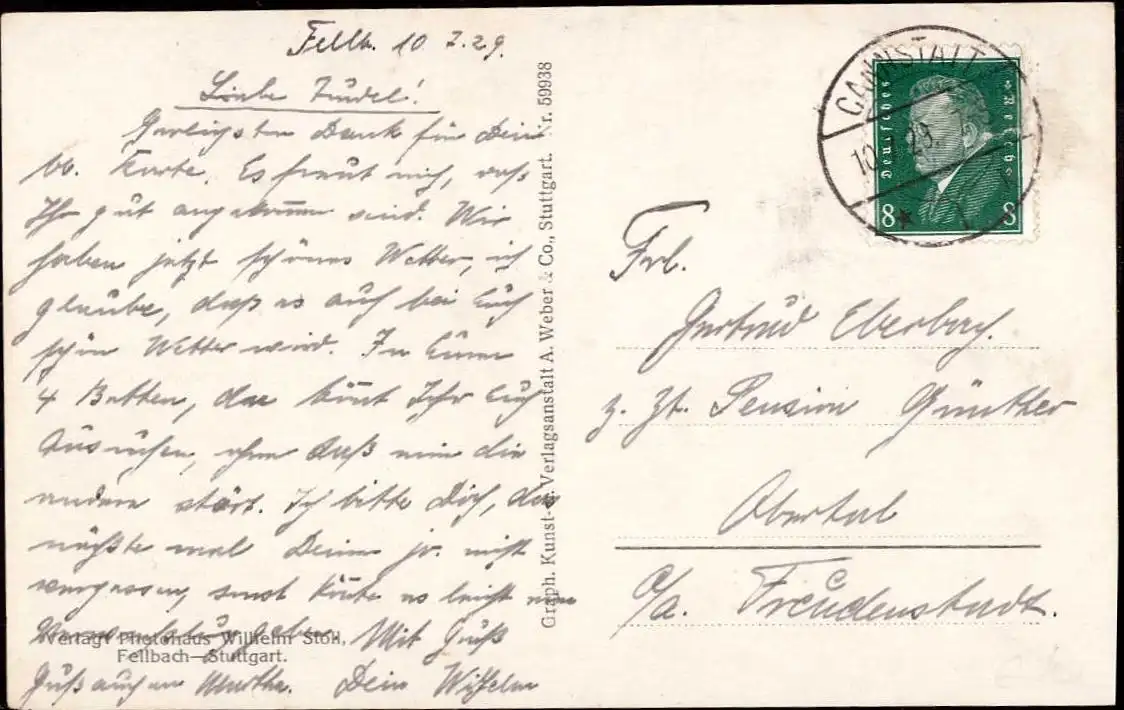 Fellb. 10.7.29.
Liebe Trudel!
Herzlichsten Dank für Deine
lb. Karte. Es freut mich, daß
Ihr gut angekommen seid. Wir
haben jetzt schönes Wetter, ich
glaube, daß es auch bei Euch
schön Wetter wird. In Eurem
4 Betten, da könnt Ihr Euch
aussuchen, ohne daß eine die
andere stört. Ich bitte Dich, das
nächste mal Deinen ja nicht
vergessen, sonst könnte es leicht eine
geben. Mit Gruß
Gruß auch an Martha. Dein Wilhelm
Verlag: Photohaus Wilhelm Stoll,
Fellbach—Stuttgart.
Graph. Kunst- u. Verlagsanstalt A. Weber & Co., Stuttgart. Nr. 59938
CANNSTATT
10. 7. 29.
Deutsches Reich
8 8
Frl.
Gertrud Eberbach.
z. Zt. Pension Günther
Obertal
O/A. Freudenstadt.